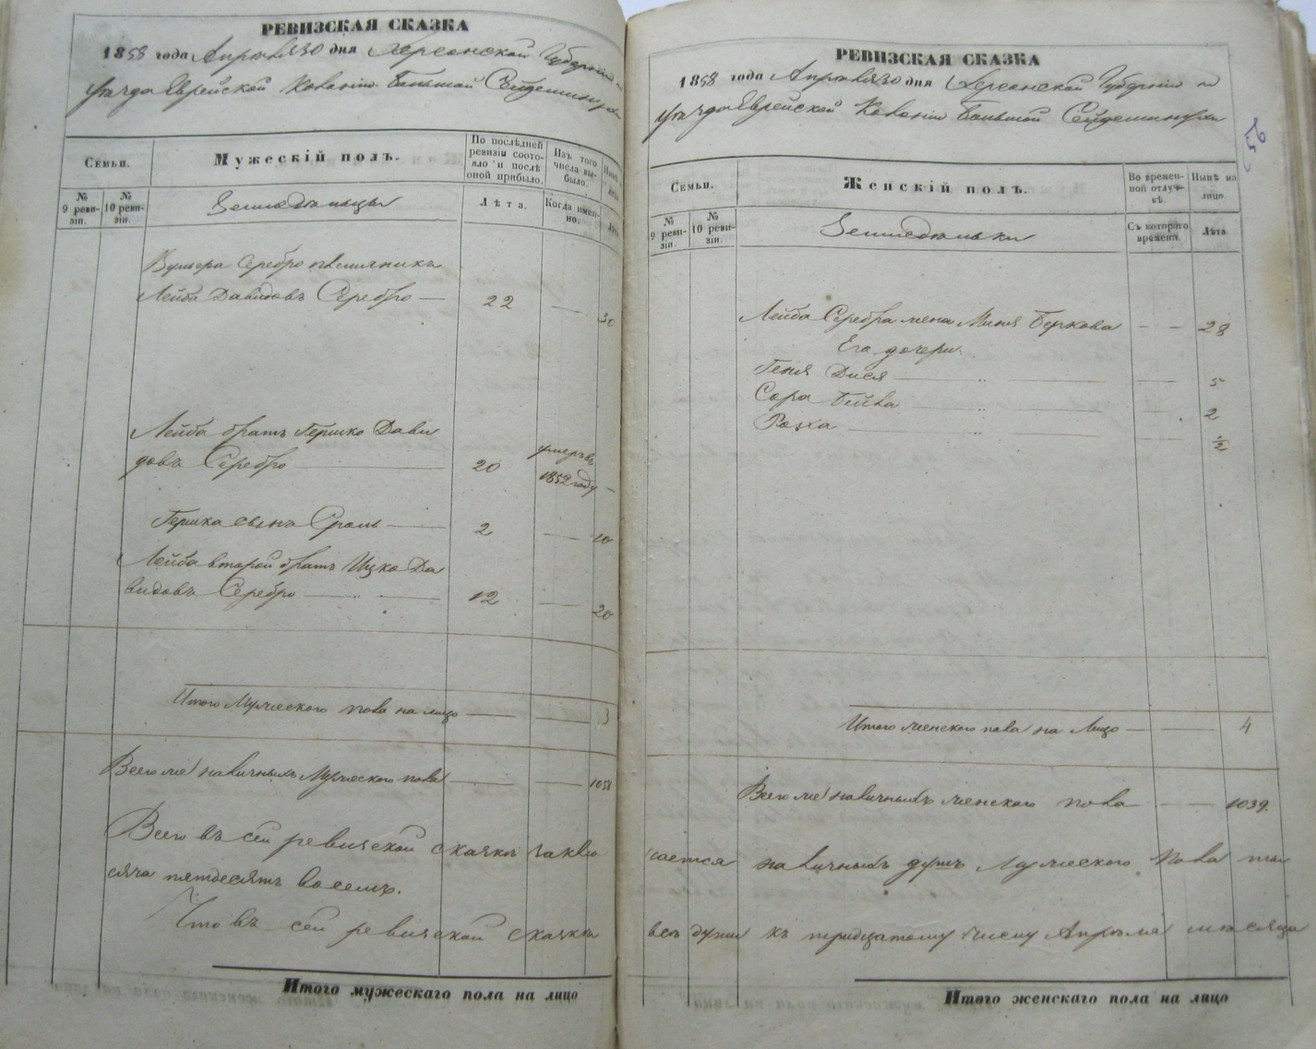 РЕВИЗСКАЯ СКАЗКА
1858 года Апреля 30 дня Херсонской Губернии и
уезда Еврейской Колонии Большой Сейдеминухи
Семьи.
Мужескій полъ.
По послѣдней ревизіи состояло и послѣ оной прибыло.
Изъ того числа выбыло.
№ 9 ревизіи.
№ 10 ревизіи.
Земледельцы
Лѣта.
Когда именно.
Серебро племянникъ
Лейба Давидовъ Серебро — 22 — 30
Лейба братъ Гершко Дави
довъ Серебро — 20
умеръ въ
1852 году —
Гершка сынъ Сроль — 2 — 10
Лейба второй братъ Ицко Да
видовъ Серебро — 12 — 20
Итого Мужеского пола на лицо — 3
Всего же наличныхъ Мужеского пола — 1058
Всего въ сей ревизской сказки заклю
сяча петдесятъ восемь.
Что въ сей ревизской сказки
Итого мужескаго пола на лицо
РЕВИЗСКАЯ СКАЗКА
1858 года Апреля 30 дня Херсонской Губернии и
уезда Еврейской Колонии Большой Сейдеминухи
56
Семьи.
Женскій полъ.
Во временной отлучкѣ.
Нынѣ на лицо.
№ 9 ревизіи.
№ 10 ревизіи.
Земледельки
Съ котораго времени.
Лѣта
Лейба Серебра жена Миня Беркова — — 28
Его дочери.
Геня Дися — 5
Сора Бейла — 2
Рохля — ½
Итого женского пола на Лицо — 4
Всего же наличныхъ женского пола — 1039
чается наличныхъ душъ Мужеского пола ты
все души къ тридцатому числу Апреля месяца
Итого женскаго пола на лицо